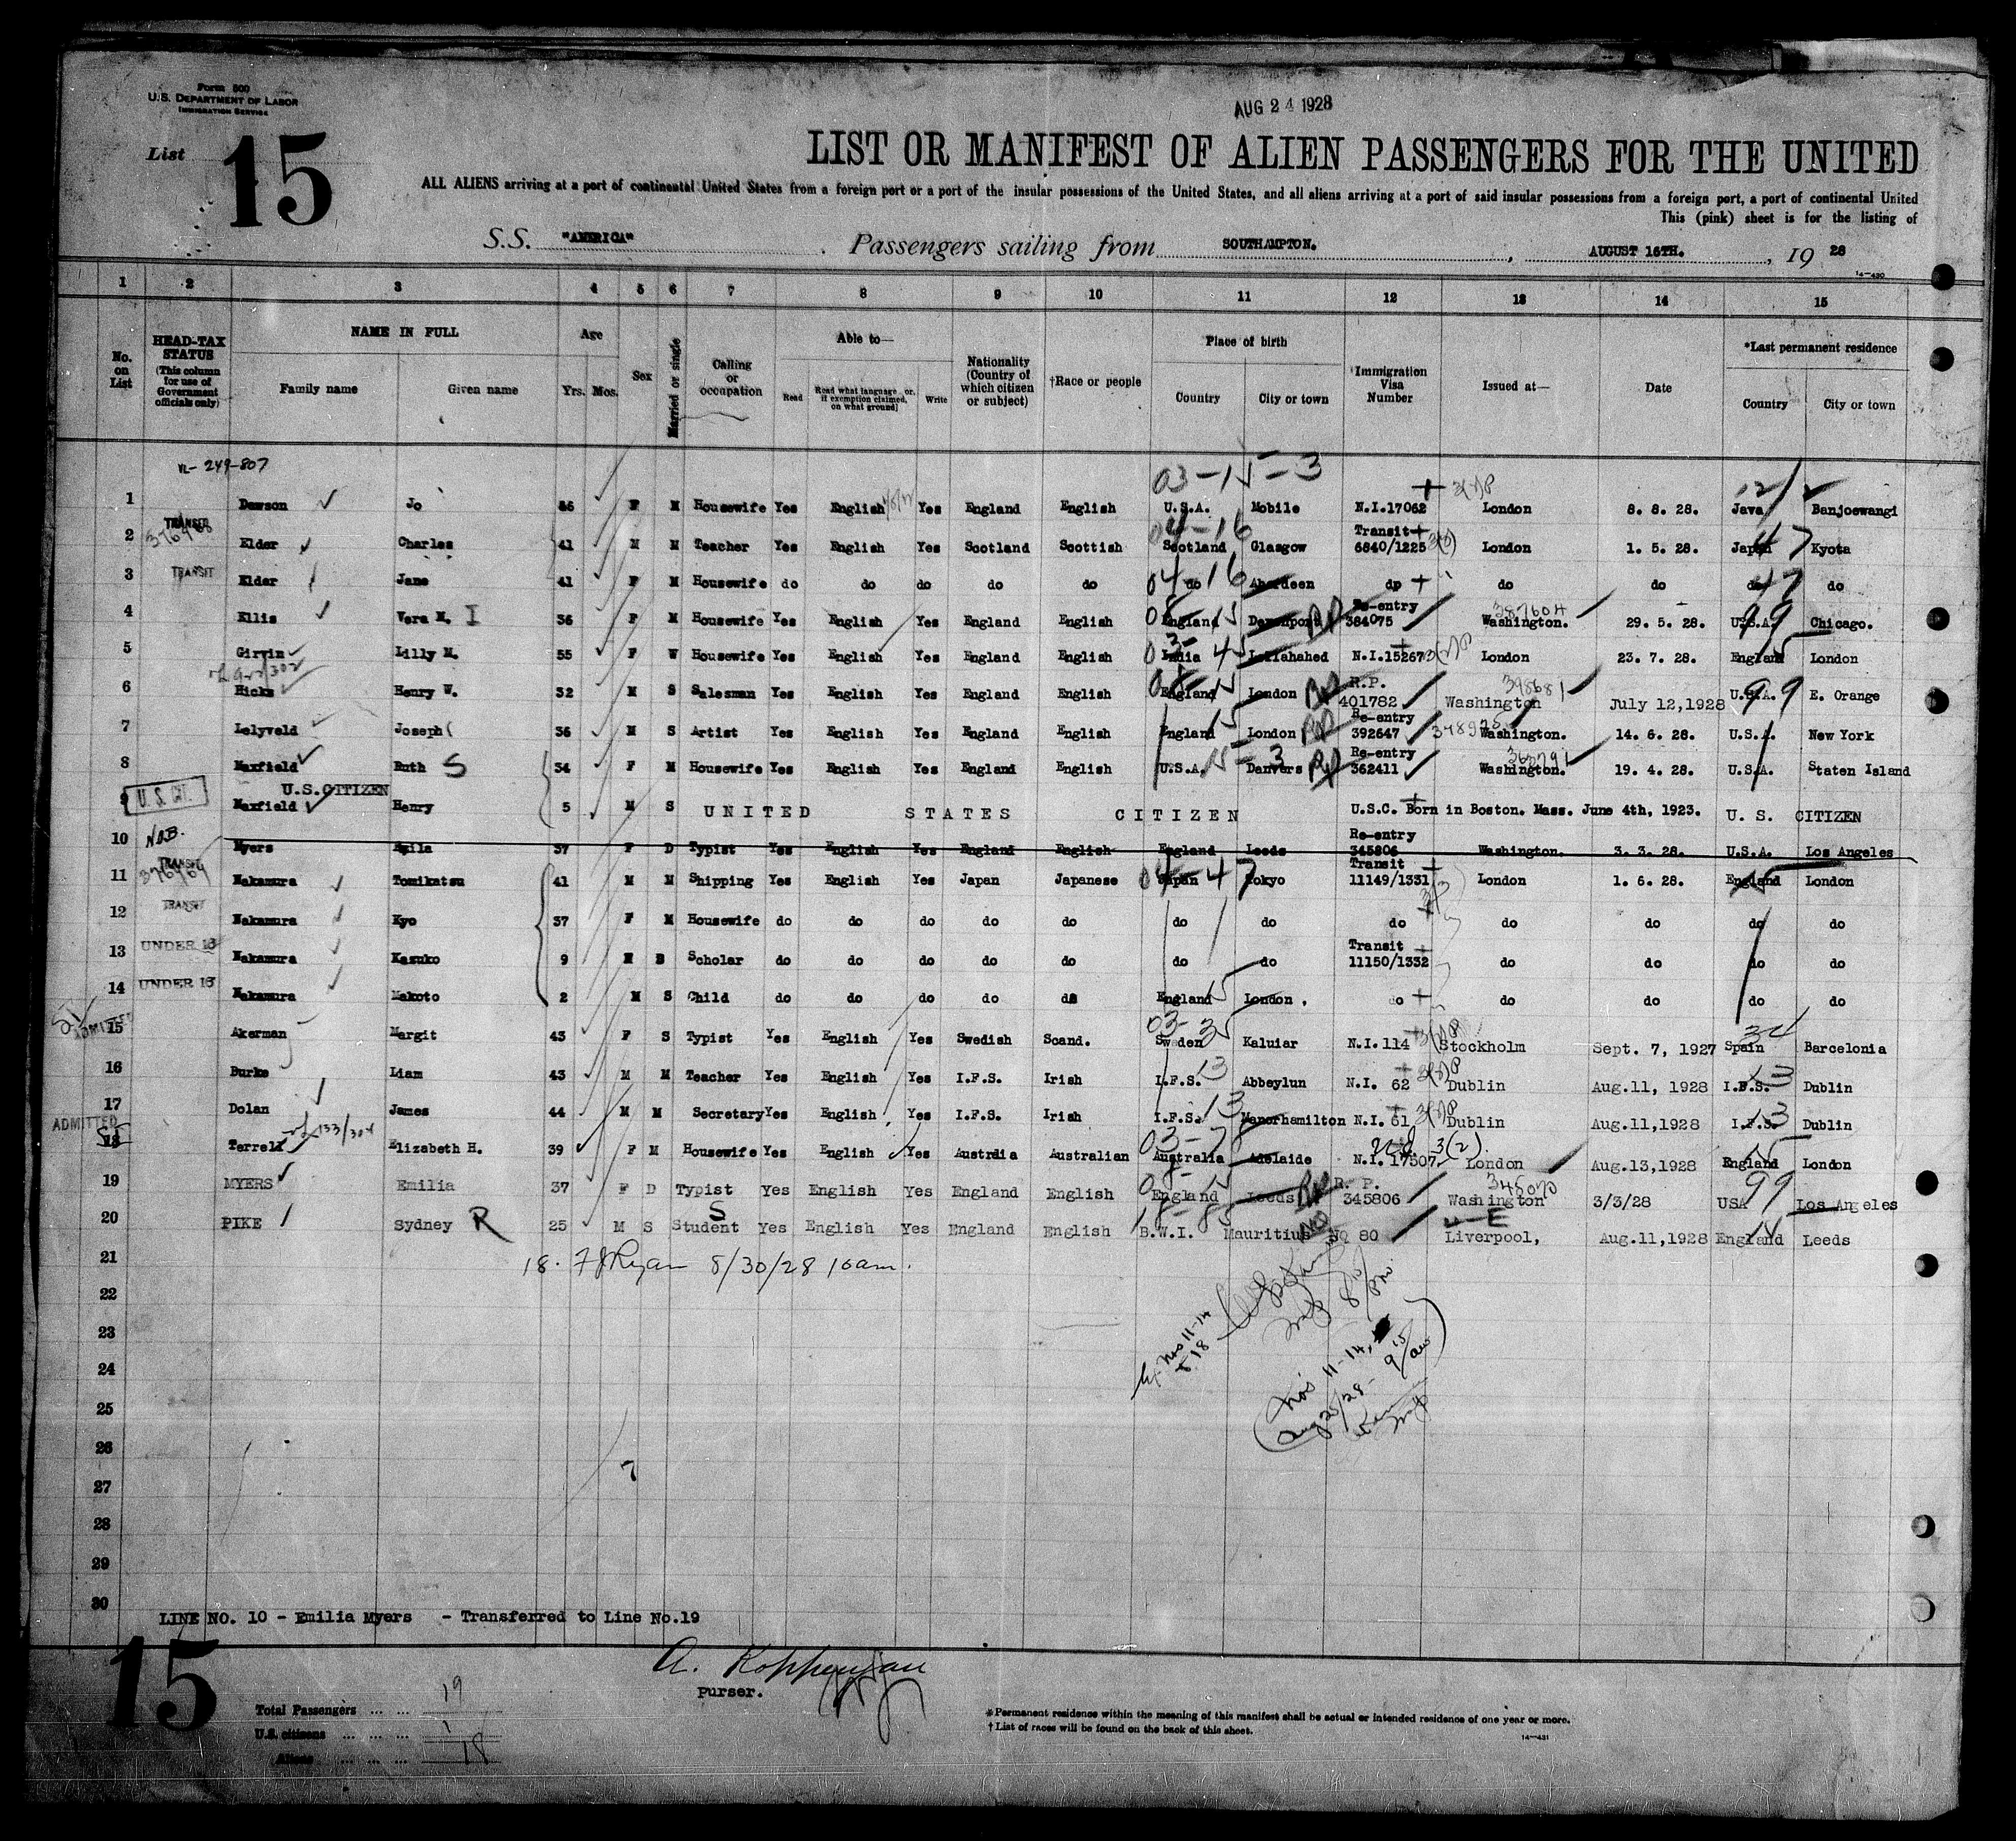 Form 500
U.S. DEPARTMENT OF LABOR
IMMIGRATION SERVICE
AUG 24 1928
List 15
LIST OR MANIFEST OF ALIEN PASSENGERS FOR THE UNITED
ALL ALIENS arriving at a port of continental United States from a foreign port or a port of the insular possessions of the United States, and all aliens arriving at a port of said insular possessions from a foreign port, a port of continental United
This (pink) sheet is for the listing of
S.S. "AMERICA" Passengers sailing from SOUTHAMPTON. , AUGUST 16TH. , 19 28
14-430
1 2 3 4 5 6 7 8 9 10 11 12 13 14 15
No. on List
HEAD-TAX STATUS (This column for use of Government officials only)
NAME IN FULL
Family name Given name
Age
Yrs. Mos.
Sex
Married or single
Calling or occupation
Able to—
Read Read what language [or, if exemption claimed, on what ground] Write
Nationality (Country of which citizen or subject)
†Race or people
Place of birth
Country City or town
Immigration Visa Number
Issued at—
Date
*Last permanent residence
Country City or town
VL-249-807 03-15-3
1 Dawson Jo F M Housewife Yes English Yes England English U.S.A. Mobile N.I.17062 London 8. 8. 28. Java Banjoewangi
2 Elder Charles 41 M M Teacher Yes English Yes Scotland Scottish 04-16 Scotland Glasgow Transit 6840/1225 London 1. 5. 28. Japan 47 Kyota
3 TRANSIT Elder Jane 41 F M Housewife do do do do do 04 do 16 Aberdeen do do do do 47 do
4 Ellis Vera M. I 36 F M Housewife Yes English Yes England English England Davenport Re-entry 384075 387604 Washington. 29. 5. 28. U.S.A. 99 Chicago.
5 Girvin Lilly M. 55 F W Housewife Yes English Yes England English India N.I.15267 London 23. 7. 28. England London
6 Hicks Henry W. 32 M S Salesman Yes English Yes England English England London R.P. 401782 398681 Washington July 12,1928 U.S.A. 99 E. Orange
7 Lelyveld Joseph 36 M S Artist Yes English Yes England English England London Re-entry 392647 Washington. 14. 6. 28. U.S.A. New York
8 Maxfield Ruth S 34 F M Housewife Yes English Yes England English U.S.A. 15-3 Danvers Re-entry 362411 Washington. 19. 4. 28. U.S.A. Staten Island
U.S. CIT. U.S.CITIZEN
9 Maxfield Henry 5 M S UNITED STATES CITIZEN U.S.C. Born in Boston. Mass. June 4th, 1923. U. S. CITIZEN
10 N.O.B. Myers Emila 37 F D Typist Yes English Yes England English England Leeds Re-entry 345806 Washington. 3. 3. 28. U.S.A. Los Angeles
11 TRANSIT Nakamura Tomikatsu 41 M M Shipping Yes English Yes Japan Japanese 04-47 Japan Tokyo Transit 11149/1331 London 1. 6. 28. England London
12 TRANSIT Nakamura Kyo 37 F M Housewife do do do do do do do do do do do do
13 UNDER 16 Nakamura Kasuko 9 Scholar do do do do do do do Transit 11150/1332 do do do do
14 UNDER 16 Nakamura Makoto 2 M S Child do do do do do England London. do do do do do
15 ADMITTED Akerman Margit 43 F S Typist Yes English Yes Swedish Scand. Sweden Kaluiar N.I.114 Stockholm Sept. 7, 1927 Spain Barcelonia
16 Burke Liam 43 M M Teacher Yes English Yes I.F.S. Irish I.F.S. 13 Abbeylun N.I. 62 Dublin Aug.11, 1928 I.F.S. 13 Dublin
17 Dolan James 44 M M Secretary Yes English Yes I.F.S. Irish I.F.S. 13 Manorhamilton N.I. 61 Dublin Aug.11,1928 I.F.S. 13 Dublin
18 ADMITTED Terrell Elizabeth H. 39 F M Housewife Yes English Yes Austrdia Australian Australia Adelaide N.I. 17507 3(2) London Aug.13,1928 England London
19 MYERS Emilia 37 F D Typist Yes English Yes England English England Leeds R. P. 345806 Washington 3/3/28 USA 99 Los Angeles
20 PIKE Sydney R 25 M S Student S Yes English Yes England English B.W.I. Mauritius No 80 Liverpool, Aug.11,1928 England Leeds
21 18. F J Ryan 8/30/28 10am.
22
23 Nos 11-14 & 18
24 Nos 11-14,
25 Aug 25/28 - 9 15/am
26
27 7
28
29
30
LINE NO. 10 - Emilia Myers - Transferred to Line No.19
15
Purser.
Total Passengers ... ... 19
U.S. citizens ... ... ... 1
Aliens ... ... ... 18
*Permanent residence within the meaning of this manifest shall be actual or intended residence of one year or more.
†List of races will be found on the back of this sheet.
14-431